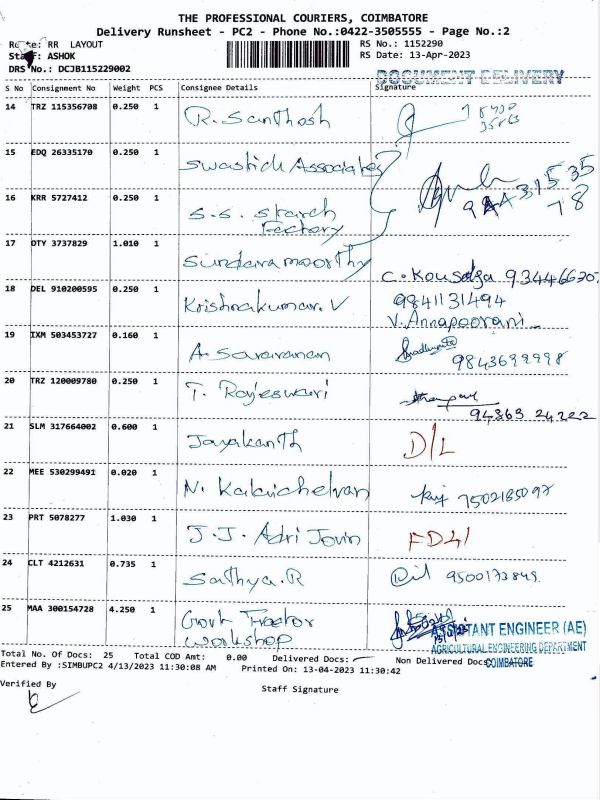 THE PROFESSIONAL COURIERS, COIMBATORE
Delivery Runsheet - PC2 - Phone No.:0422-3505555 - Page No.:2
Route: RR LAYOUT
RS No.: 1152290
Staff: ASHOK
RS Date: 13-Apr-2023
DRS No.: DCJB115229002
DOCUMENT DELIVERY
S No Consignment No Weight PCS Consignee Details Signature
14 TRZ 115356708 0.250 1 R. Santhosh
15 EDQ 26335170 0.250 1 Swastick Associates
16 KRR 5727412 0.250 1 S.S. Starch
Factory
17 OTY 3737829 1.010 1 Sundaramoorthy
C. Kousalya
18 DEL 910200595 0.250 1 Krishnakumar. V 9841131494
V. Annapoorani
19 IXM 503453727 0.160 1 A. Saravanan
20 TRZ 120009780 0.250 1 T. Rajeswari
94363 24222
21 SLM 317664002 0.600 1 Jayakanth D/L
22 MEE 530299491 0.020 1 N. Kalaichelvan
23 PRT 5078277 1.030 1 J.J. Adri Jovin
24 CLT 4212631 0.735 1 Sathya.R
25 MAA 300154728 4.250 1 Govt Tractor
Workshop
ASSISTANT ENGINEER (AE)
AGRICULTURAL ENGINEERING DEPARTMENT
COIMBATORE
Total No. Of Docs: 25 Total COD Amt: 0.00 Delivered Docs: Non Delivered Docs:
Entered By :SIMBUPC2 4/13/2023 11:30:08 AM Printed On: 13-04-2023 11:30:42
Verified By
Staff Signature